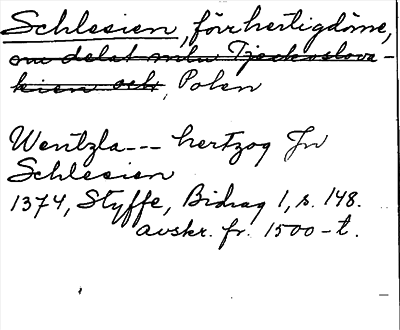 Schlesien, förr hertigdöme,
om delat mln Tjeckoslova-
kien och, Polen
Wentzla--- hertzog Jn
Schlesien
1374, Styffe, Bidrag 1, s. 148.
avskr. fr. 1500-t.